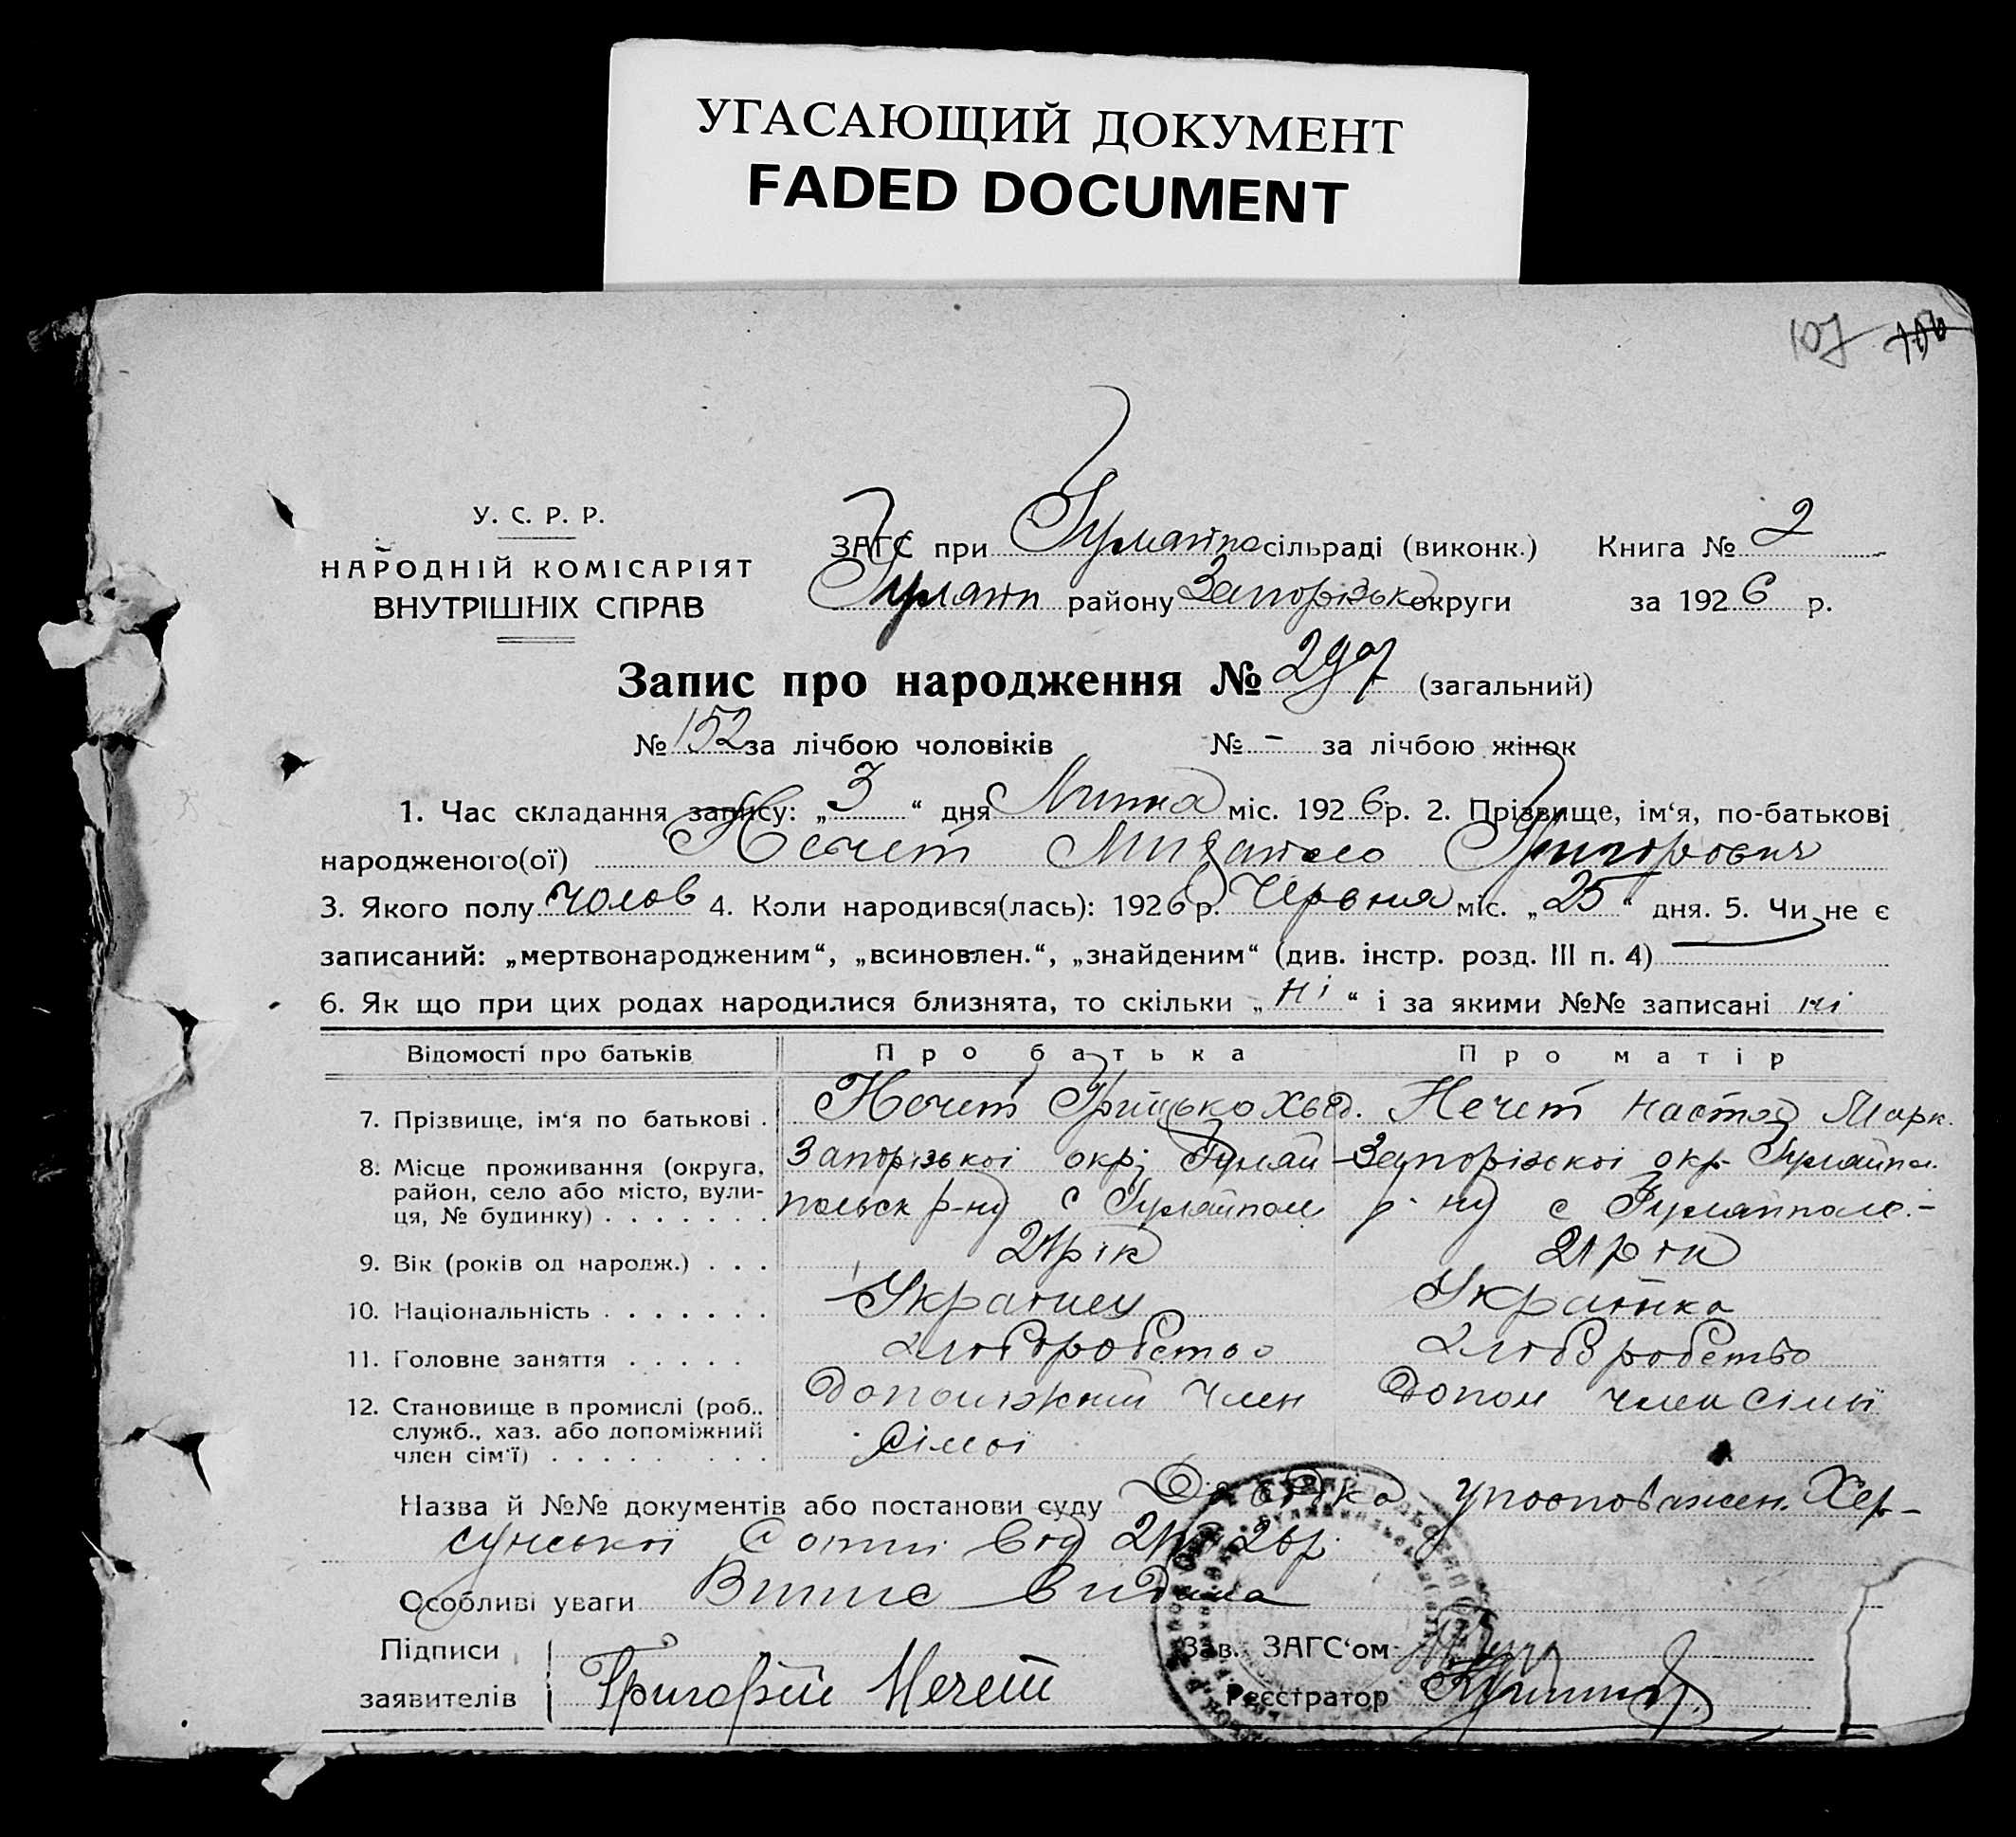 УГАСАЮЩИЙ ДОКУМЕНТ
FADED DOCUMENT
107 106
У. С. Р. Р.
НАРОДНІЙ КОМІСАРІЯТ
ВНУТРІШНІХ СПРАВ
ЗАГС при Гуляйпо сільраді (виконк.) Книга № 2
Гуляйп району Запорізьк округи за 1926 р.
Запис про народження № 297 (загальний)
№ 152 за лічбою чоловіків № - за лічбою жінок
1. Час складання запису: „ 3 “ дня Липня міс. 1926 р. 2. Прізвище, ім‘я, по-батькові
народженого(ої) Нечет Михайло Григорович
3. Якого полу чолов 4. Коли народився(лась): 1926 р. Червня міс. „ 25 “ дня. 5. Чи не є
записаний: „мертвонародженим“, „всиновлен.“, „знайденим“ (див. інстр. розд. III п. 4)
6. Як що при цих родах народилися близнята, то скільки „ ні “ і за якими №№ записані ні
Відомості про батьків Про батька Про матір
7. Прізвище, ім‘я по батькові . Нечет Грицько Хвед. Нечет Настя Марк.
8. Місце проживання (округа, район, село або місто, вулиця, № будинку) . . . . . . . Запорізькоі окр; Гуляйпольск р-ну с Гуляйполе Запорізькоі окр. Гуляйпол. р-ну с Гуляйполе.-
9. Вік (років од народж.) . . . 21 рік 21 рік
10. Національність . . . . . . . Украінец Украінка
11. Головне заняття . . . . . Хліборобство Хліборобство
12. Становище в промислі (роб., служб., хаз. або допоміжний член сім‘ї) . . . . . . . . . Допоміжний член сімьі Допом член сімьі
Назва й №№ документів або постанови суду Довідка уповноважен. Хер-
сунської Сотні від
Особливі уваги Випис видана
Підписи Зав. ЗАГС‘ом
заявителів Григорій Нечет Реєстратор